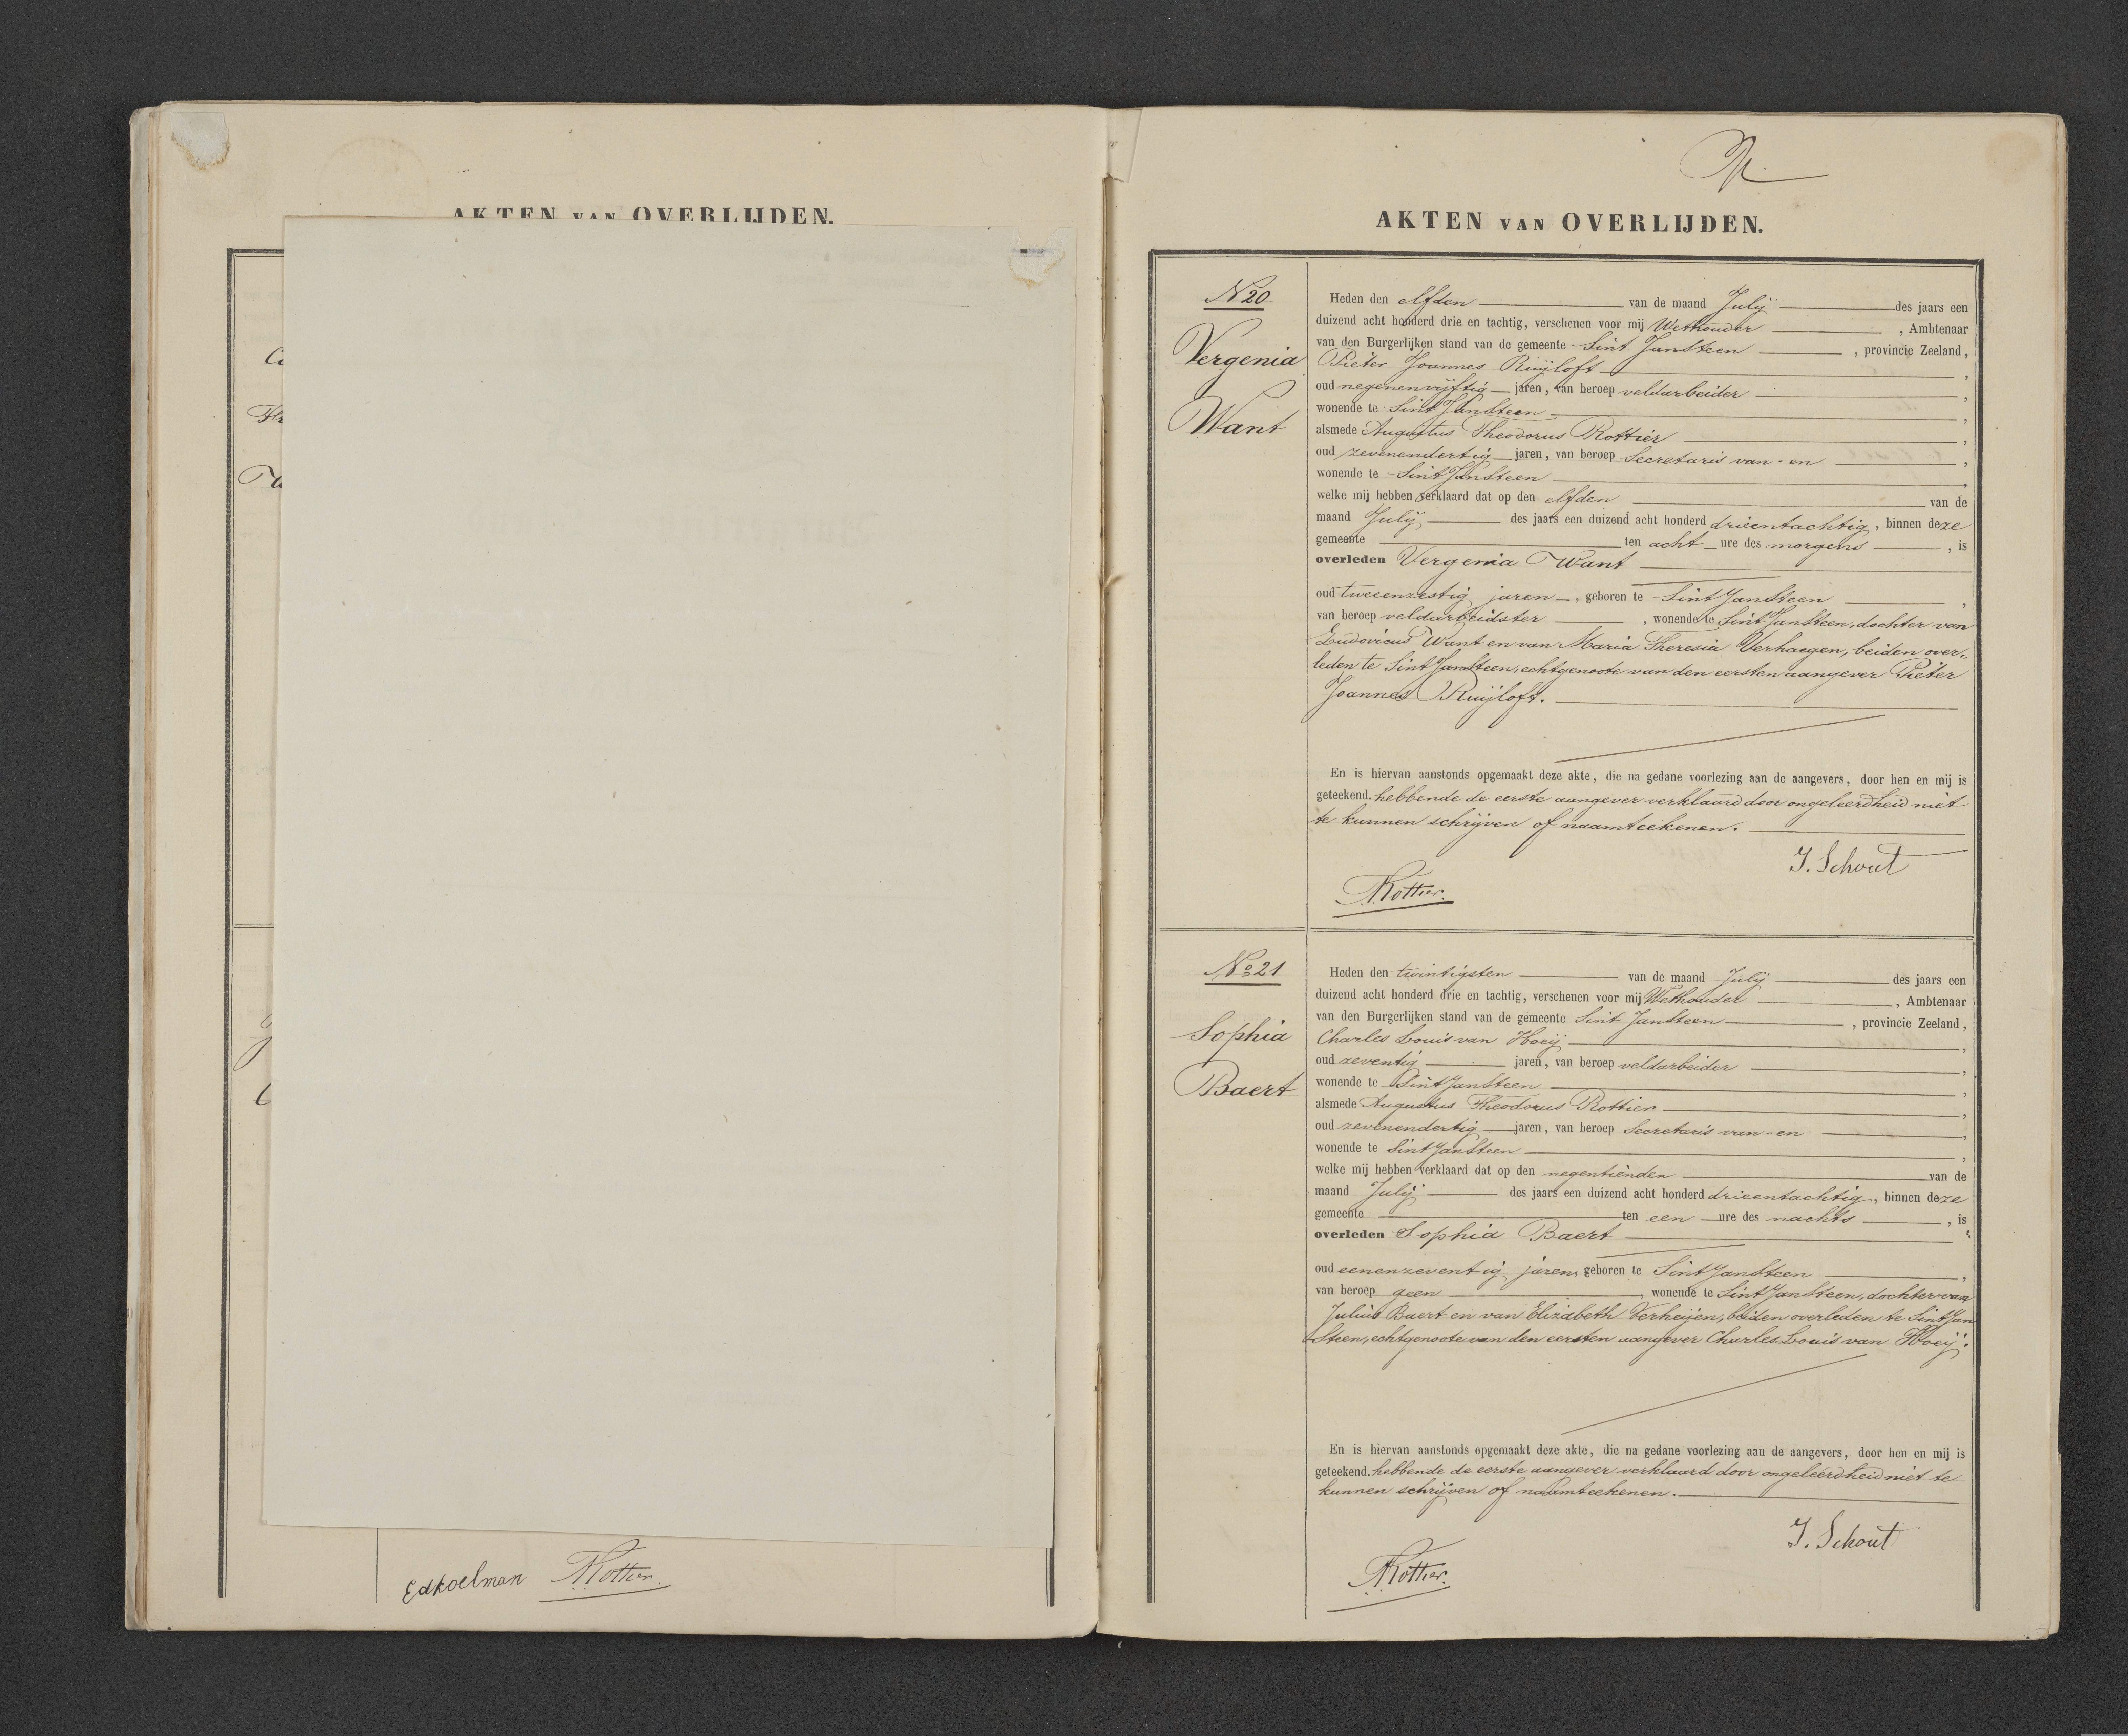 AKTEN VAN OVERLIJDEN.
Edkoelman Rottier.
AKTEN VAN OVERLIJDEN.
No 20
Vergenia
Want
Heden den elfden van de maand July des jaars een
duizend acht honderd drie en tachtig, verschenen voor mij Wethouder, Ambtenaar
van den Burgerlijken stand van de gemeente Sint JanSteen, provincie Zeeland,
Pieter Joannes Ruijloft,
oud negenenvijftig jaren, van beroep veldarbeider,
wonende te Sint JanSteen,
alsmede Augustus Theodorus Rottier,
oud zevenendertig jaren, van beroep Secretaris van - en,
wonende te Sint JanSteen,
welke mij hebben verklaard dat op den elfden van de
maand July des jaars een duizend acht honderd drieentachtig, binnen deze
gemeente ten acht ure des morgens, is
overleden Vergenia Want
oud tweeenzestig jaren, geboren te Sint JanSteen,
van beroep veldarbeidster, wonende te Sint JanSteen, dochter van
Ludovicus Want en van Maria Theresia Verhaegen, beiden over-
leden te Sint JanSteen, echtgenoote van den eersten aangever Pieter
Joannes Ruijloft.
En is hiervan aanstonds opgemaakt deze akte, die na gedane voorlezing aan de aangevers, door hen en mij is
geteekend. hebbende de eerste aangever verklaard door ongeleerdheid niet
te kunnen schrijven of naamteekenen.
J. Schout
Rottier.
No 21
Sophia
Baert
Heden den twintigsten van de maand July des jaars een
duizend acht honderd drie en tachtig, verschenen voor mij Wethouder, Ambtenaar
van den Burgerlijken stand van de gemeente Sint JanSteen, provincie Zeeland,
Charles Louis van Hoeij,
oud zeventig jaren, van beroep veldarbeider,
wonende te Sint JanSteen,
alsmede Augustus Theodorus Rottier,
oud zevenendertig jaren, van beroep Secretaris van - en,
wonende te Sint JanSteen,
welke mij hebben verklaard dat op den negentienden van de
maand July des jaars een duizend acht honderd drieentachtig, binnen deze
gemeente ten een ure des nachts, is
overleden Sophia Baert
oud eenenzeventig jaren, geboren te Sint JanSteen,
van beroep geen, wonende te Sint JanSteen, dochter van
Julius Baert en van Elizabeth Verheijen, beiden overleden te Sint Jan
Steen, echtgenoote van den eersten aangever Charles Louis van Hoeij.
En is hiervan aanstonds opgemaakt deze akte, die na gedane voorlezing aan de aangevers, door hen en mij is
geteekend. hebbende de eerste aangever verklaard door ongeleerdheid niet te
kunnen schrijven of naamteekenen.
J. Schout
Rottier.